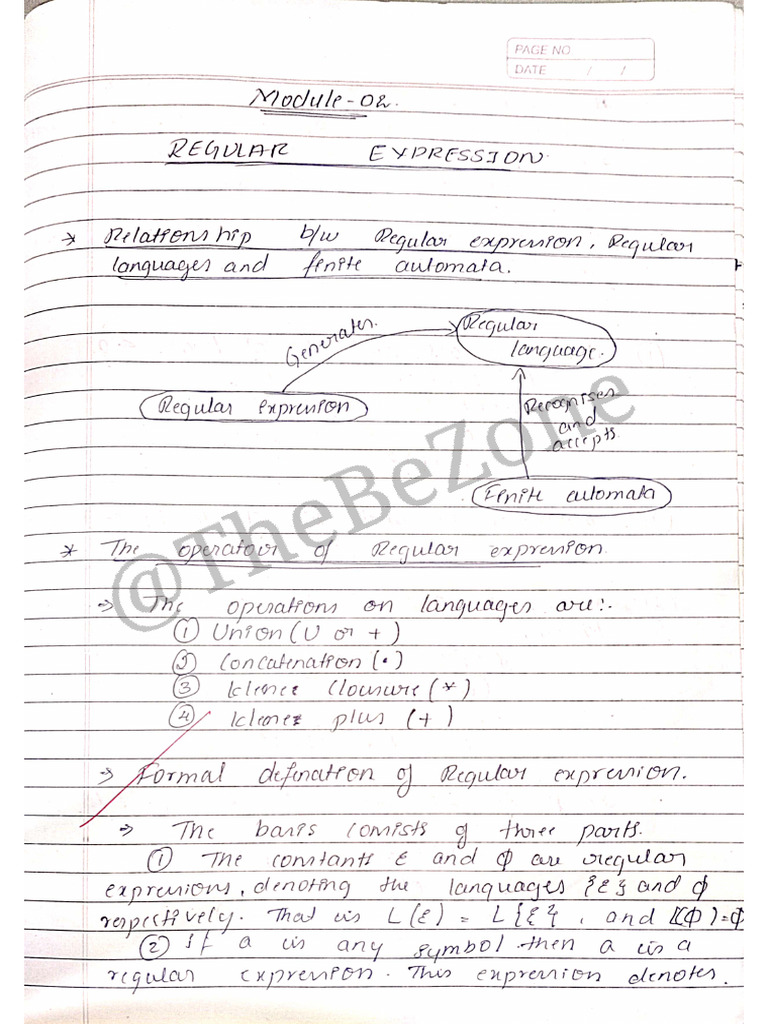 PAGE NO
DATE / /
Module-02.
REGULAR EXPRESSION
* Relationship b/w Regular expression, Regular
languages and finite automata.
Generates
Regular
language.
Regular expression
Recognises
and
accepts
Finite automata
@TheBeZone
* The operatour of Regular expression
→ The operations on languages are:-
① Union (U or +)
② Concatenation (•)
③ Kleene Clousure (*)
④ Kleene plus (+)
→ Formal defination of Regular expression.
→ The basis consists of three parts.
① The constants ε and φ are regular
expressions, denoting the languages {ε} and φ
respectively. That is L(ε) = L{ε}, and L(φ)=φ
② If a is any symbol then a is a
regular expression. This expression denotes.